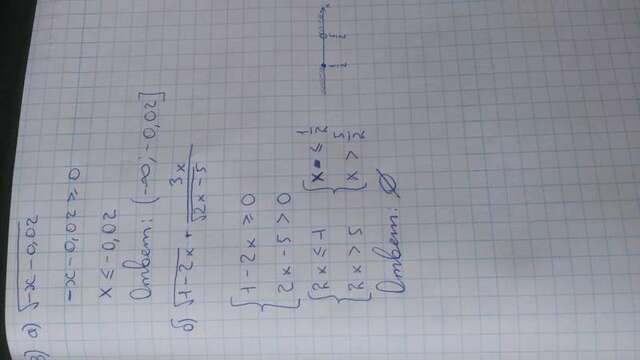 3) а) √(-x-0,02)
-x-0,02 ≥ 0
x ≤ -0,02
Ответ: (-∞; -0,02]
б) √(1-2x) + 3x/√(2x-5)
{1-2x ≥ 0
{2x-5 > 0
{2x ≤ -1 {x ≤ 1/2
{2x > 5 {x > 5/2
Ответ: ∅